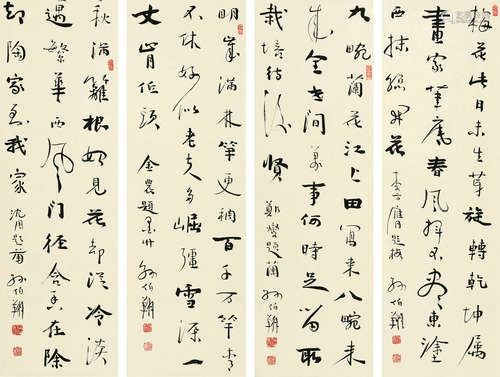 梅花此日未生芽旋轉乾坤屬
畫家筆底春風揮不盡東塗
西抹總開花 李方膺題梅 孫伯翔
九畹蘭花江上田寫來八畹未
成全世間萬事何時足留取
栽培待後賢 鄭燮題蘭 孫伯翔
明歲滿林筍更稠百千万竿青
不休好似老夫多崛彊雪深一
丈肯低頭 金農題墨竹 孫伯翔
秋滿籬根始見花却從冷淡
遇繁華西風門徑含香在除
却陶家到我家 沈周題菊 孫伯翔